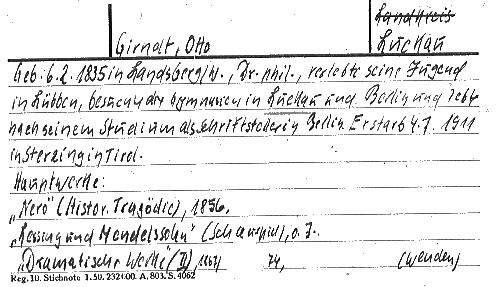 Landkreis
Girndt, Otto Luckau
Geb. 6.2. 1835 in Landsberg/W., Dr. phil., verlebte seine Jugend
in Lübben, besuchte die Gymnasien in Luckau und Berlin und lebte
nach seinem Studium als Schriftsteller in Berlin. Er starb 4.7. 1911
in Sterzing in Tirol.
Hauptwerke:
„Nero" (Histor. Tragödie), 1856,
„Lessing und Mendelssohn" (Schauspiel), o.J.
„Dramatische Werke" (II), 1867/ 74, (wenden)
Reg. 10. Stichnote 1. 50. 232400. A. 803. S. 4062